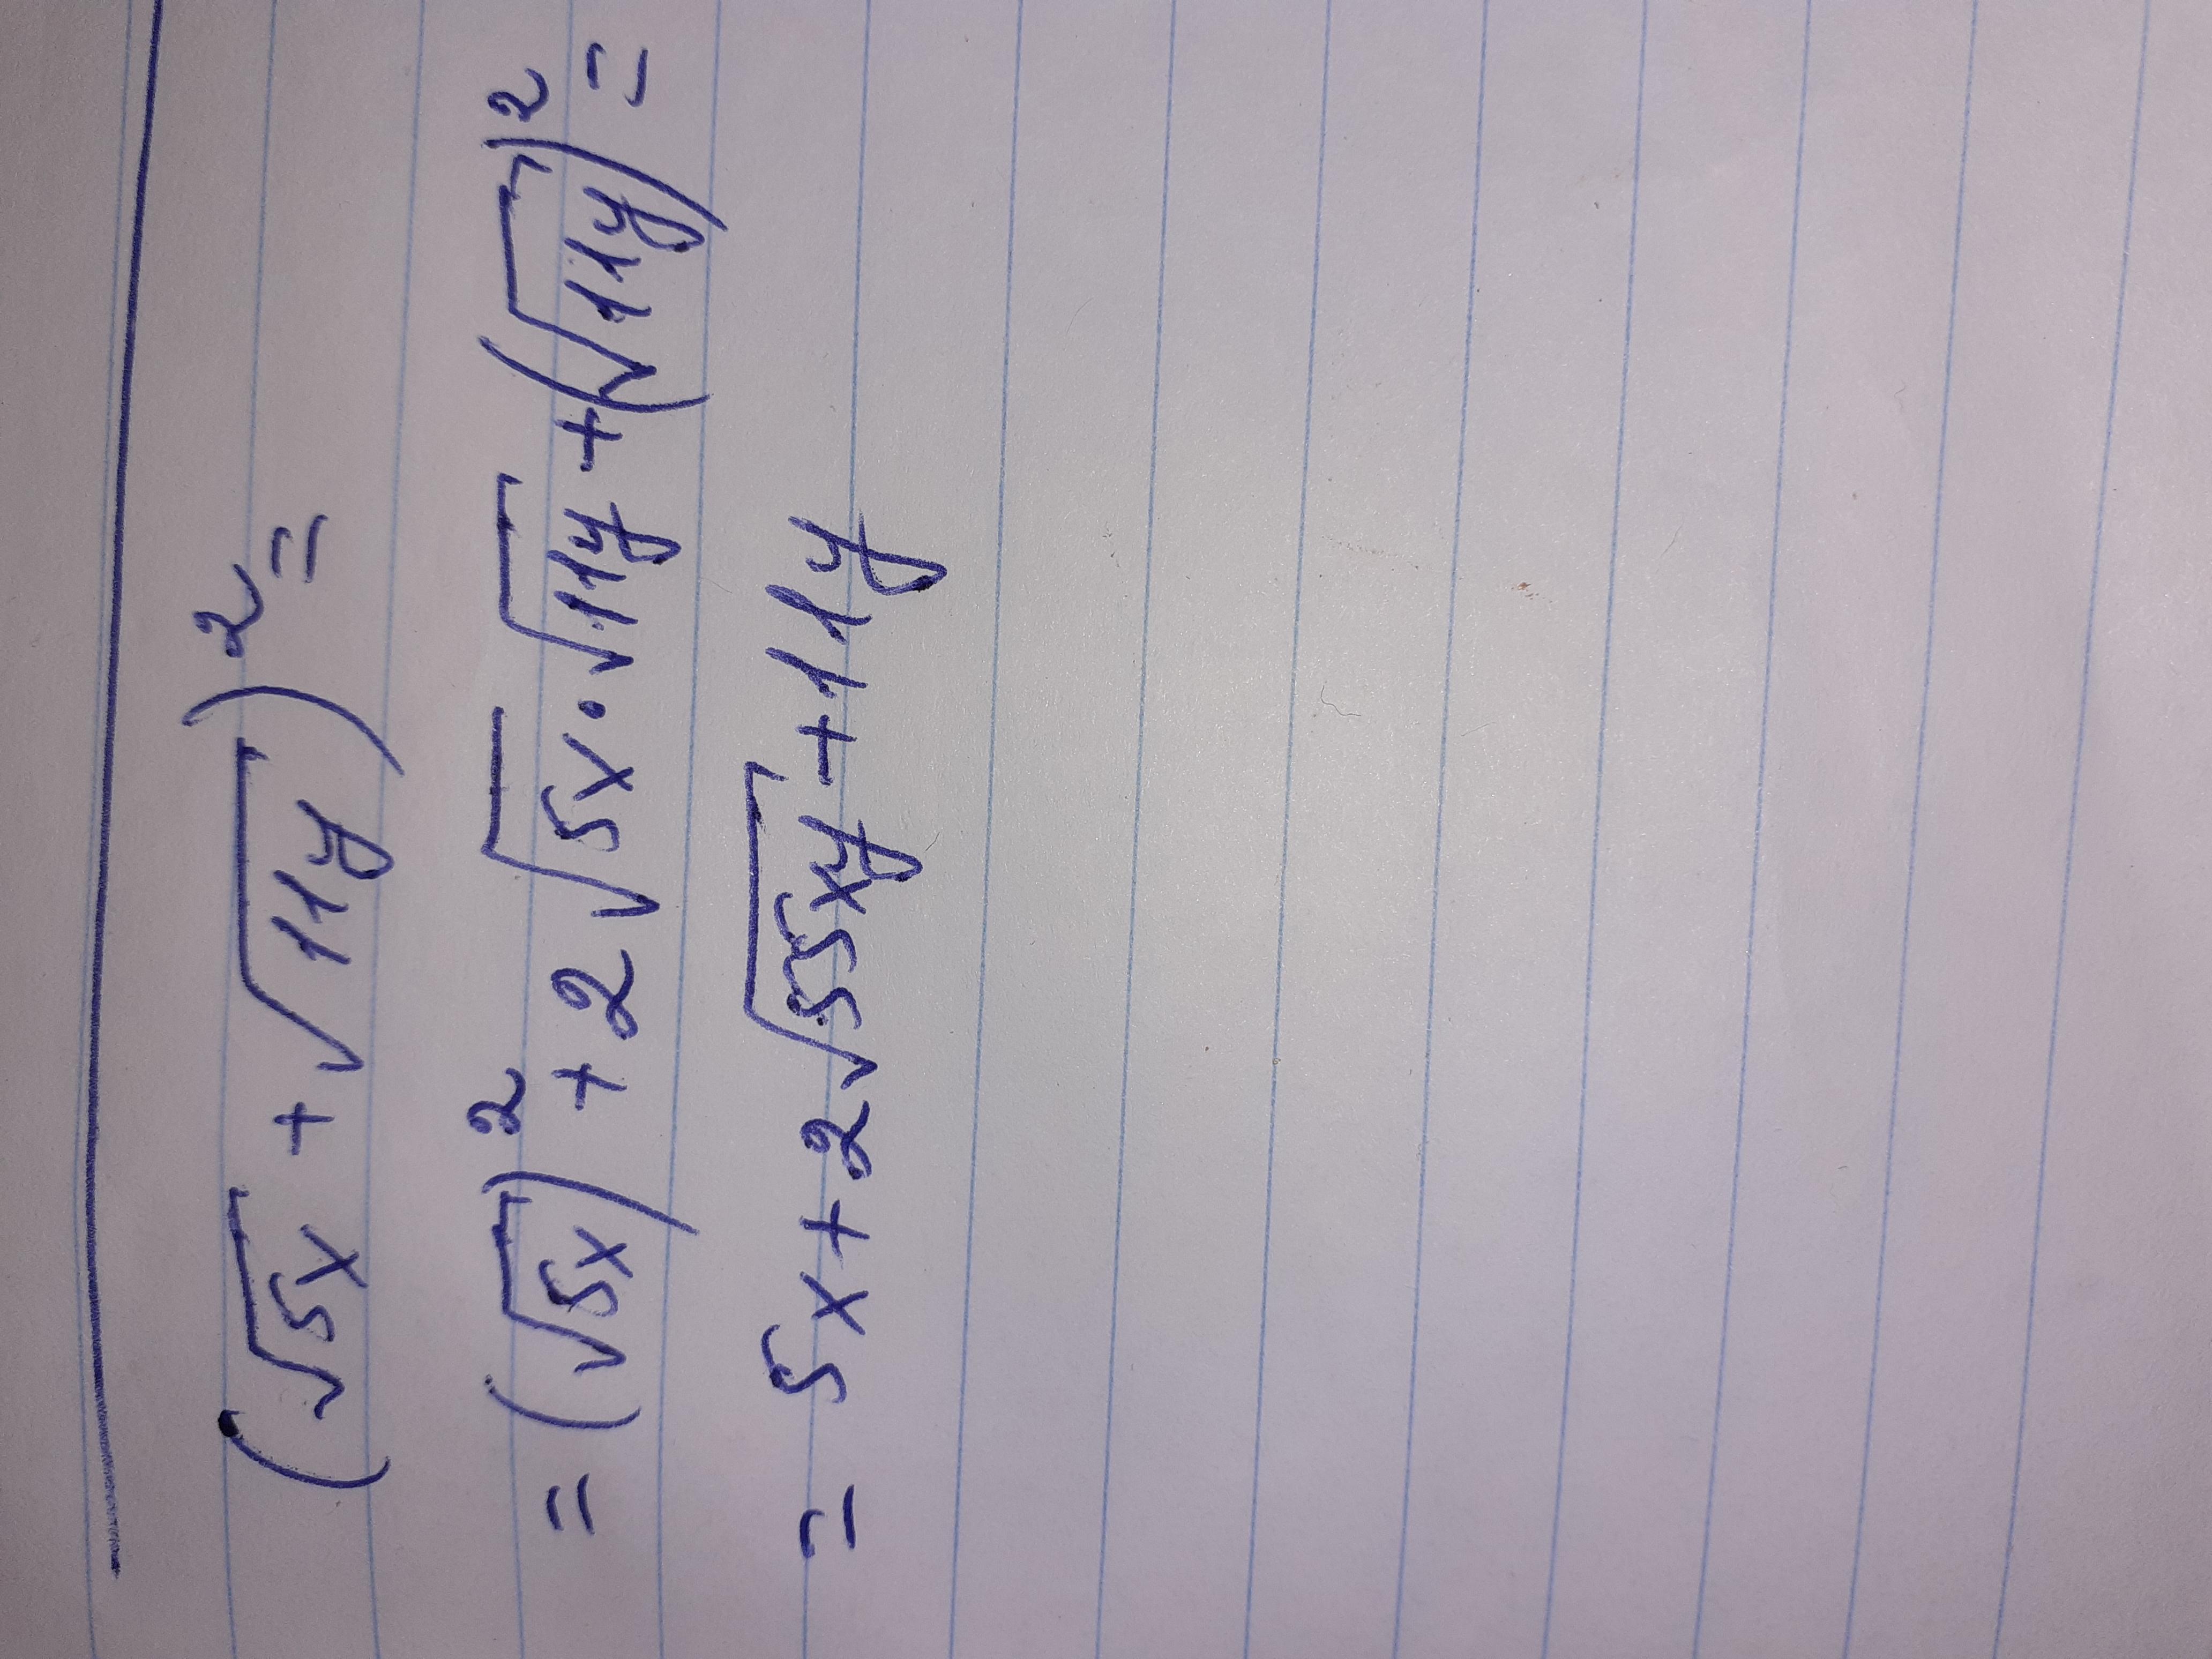 (√5x + √11y)² =
= (√5x)² + 2√5x · √11y + (√11y)² =
= 5x + 2√55xy + 11y